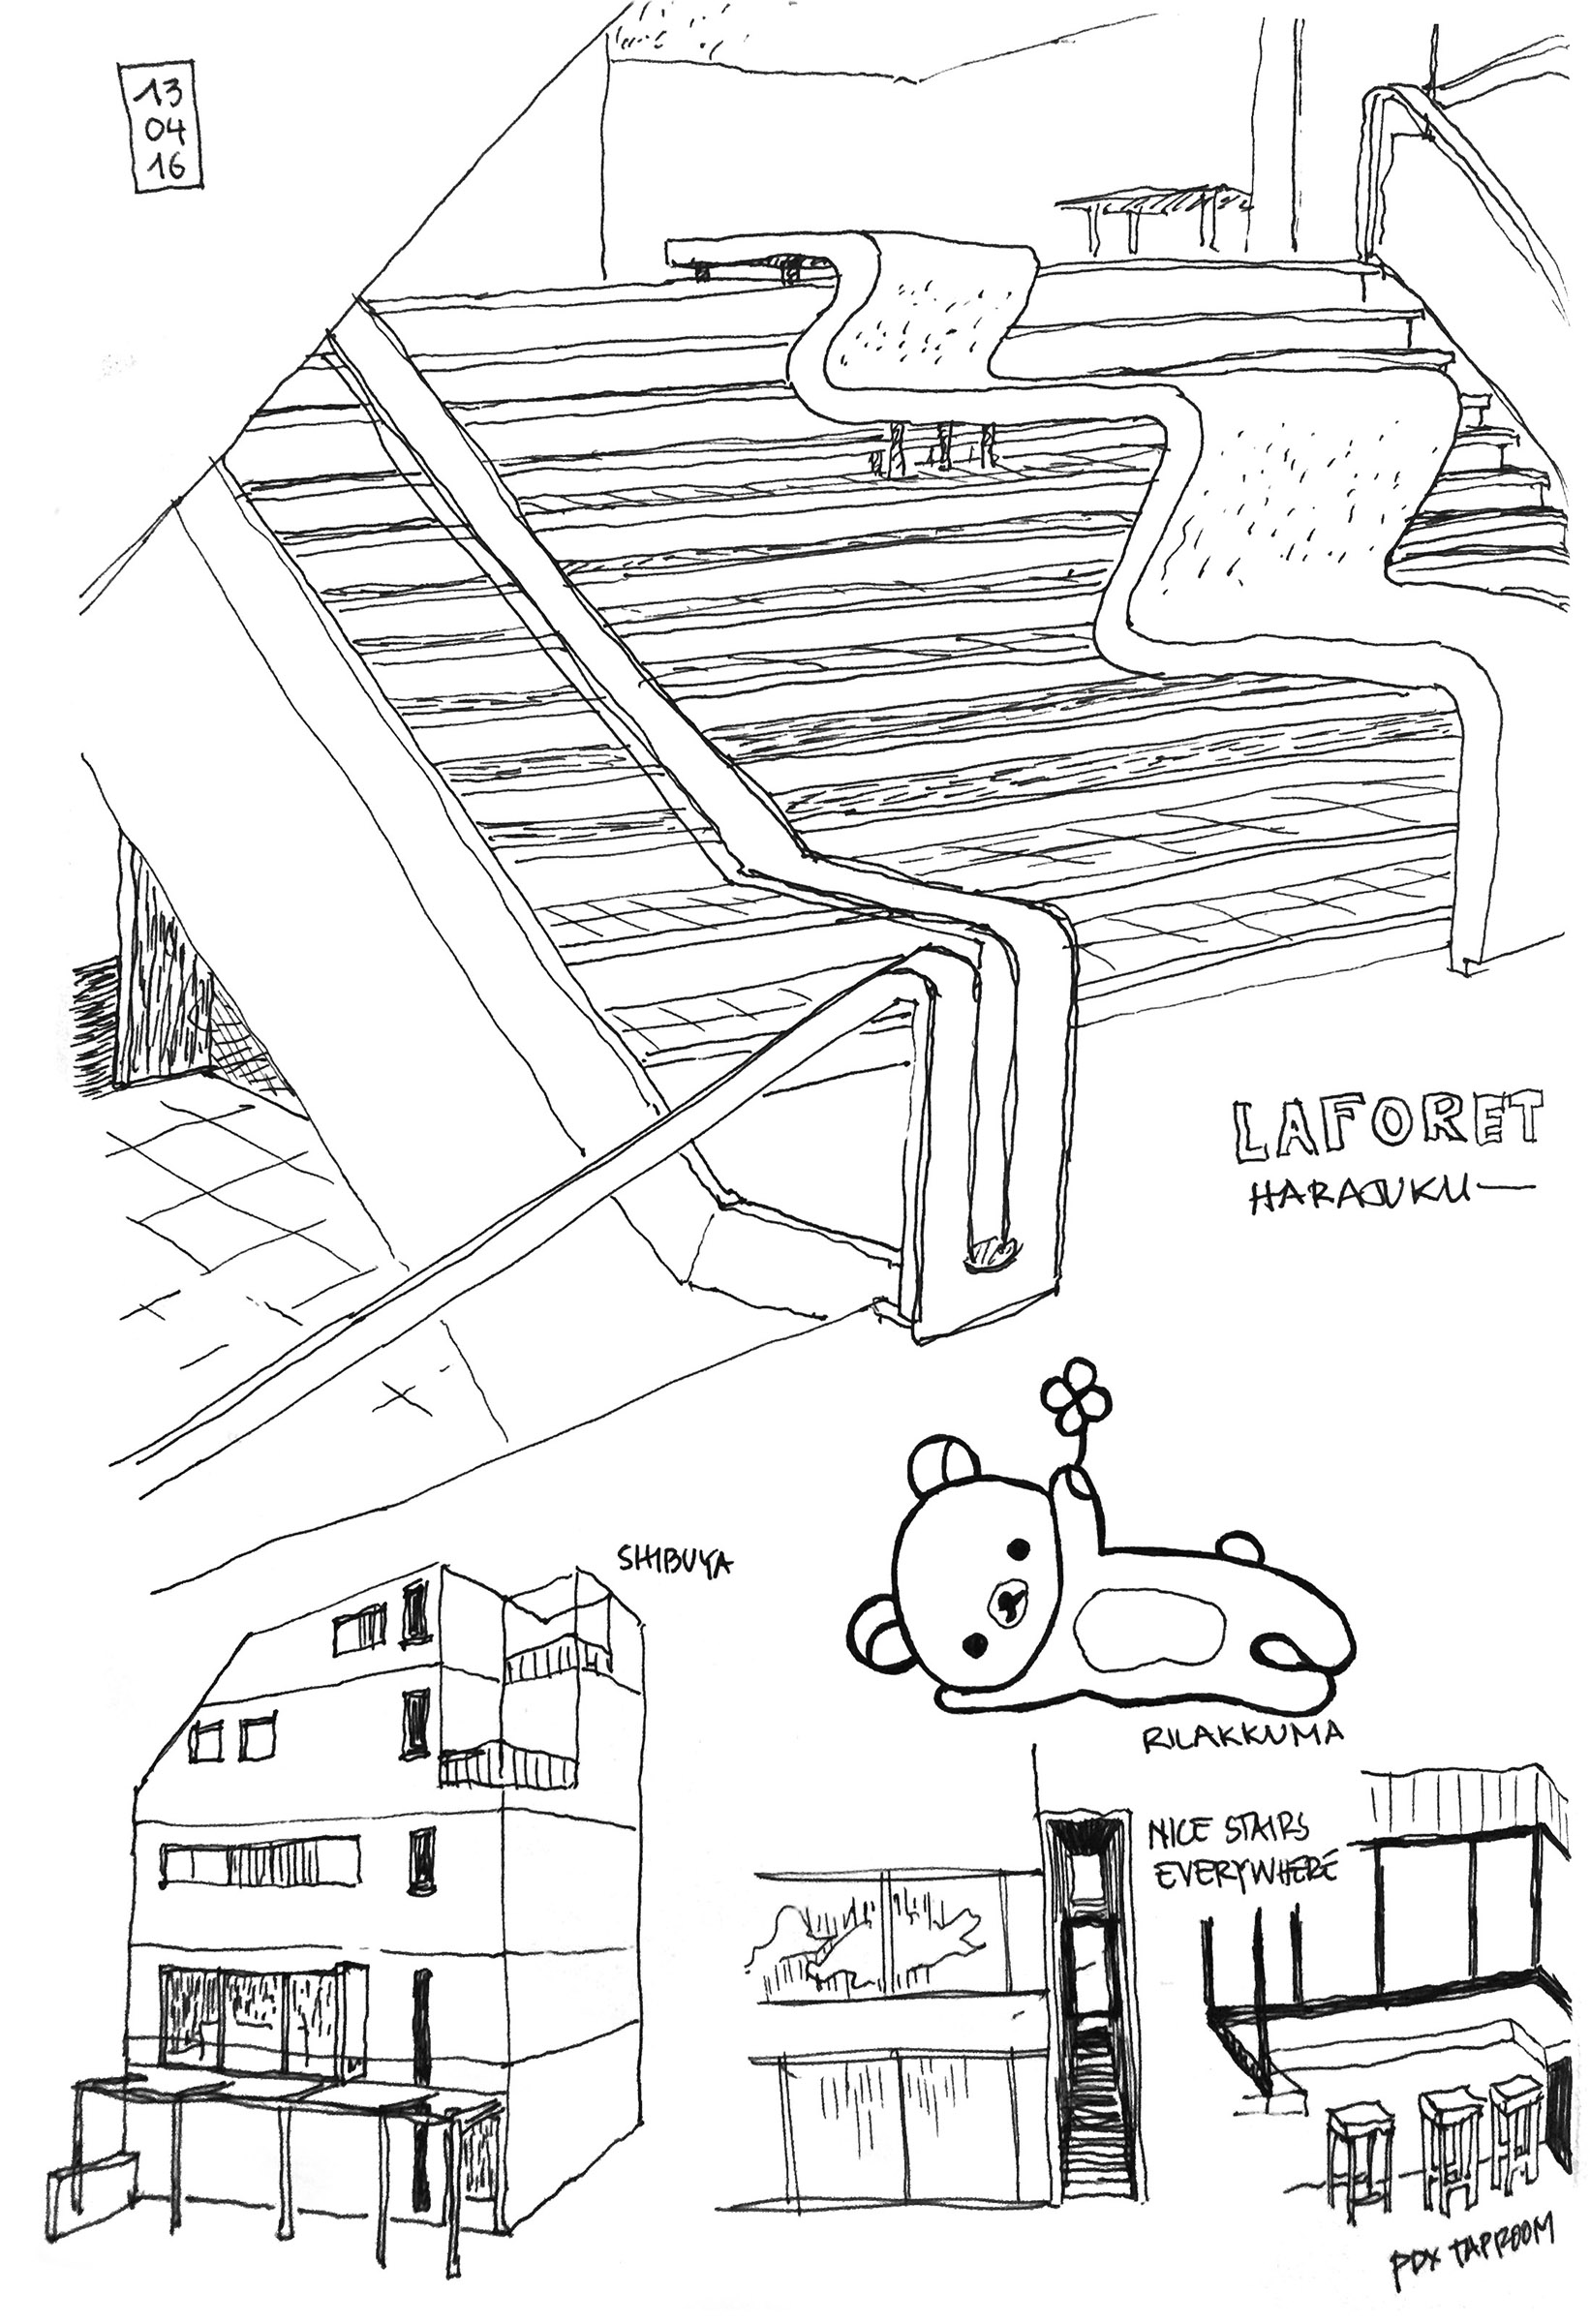 13
04
16
LAFORET
HARAJUKU—
SHIBUYA
RILAKKUMA
NICE STAIRS
EVERYWHERE
PDX TAPROOM